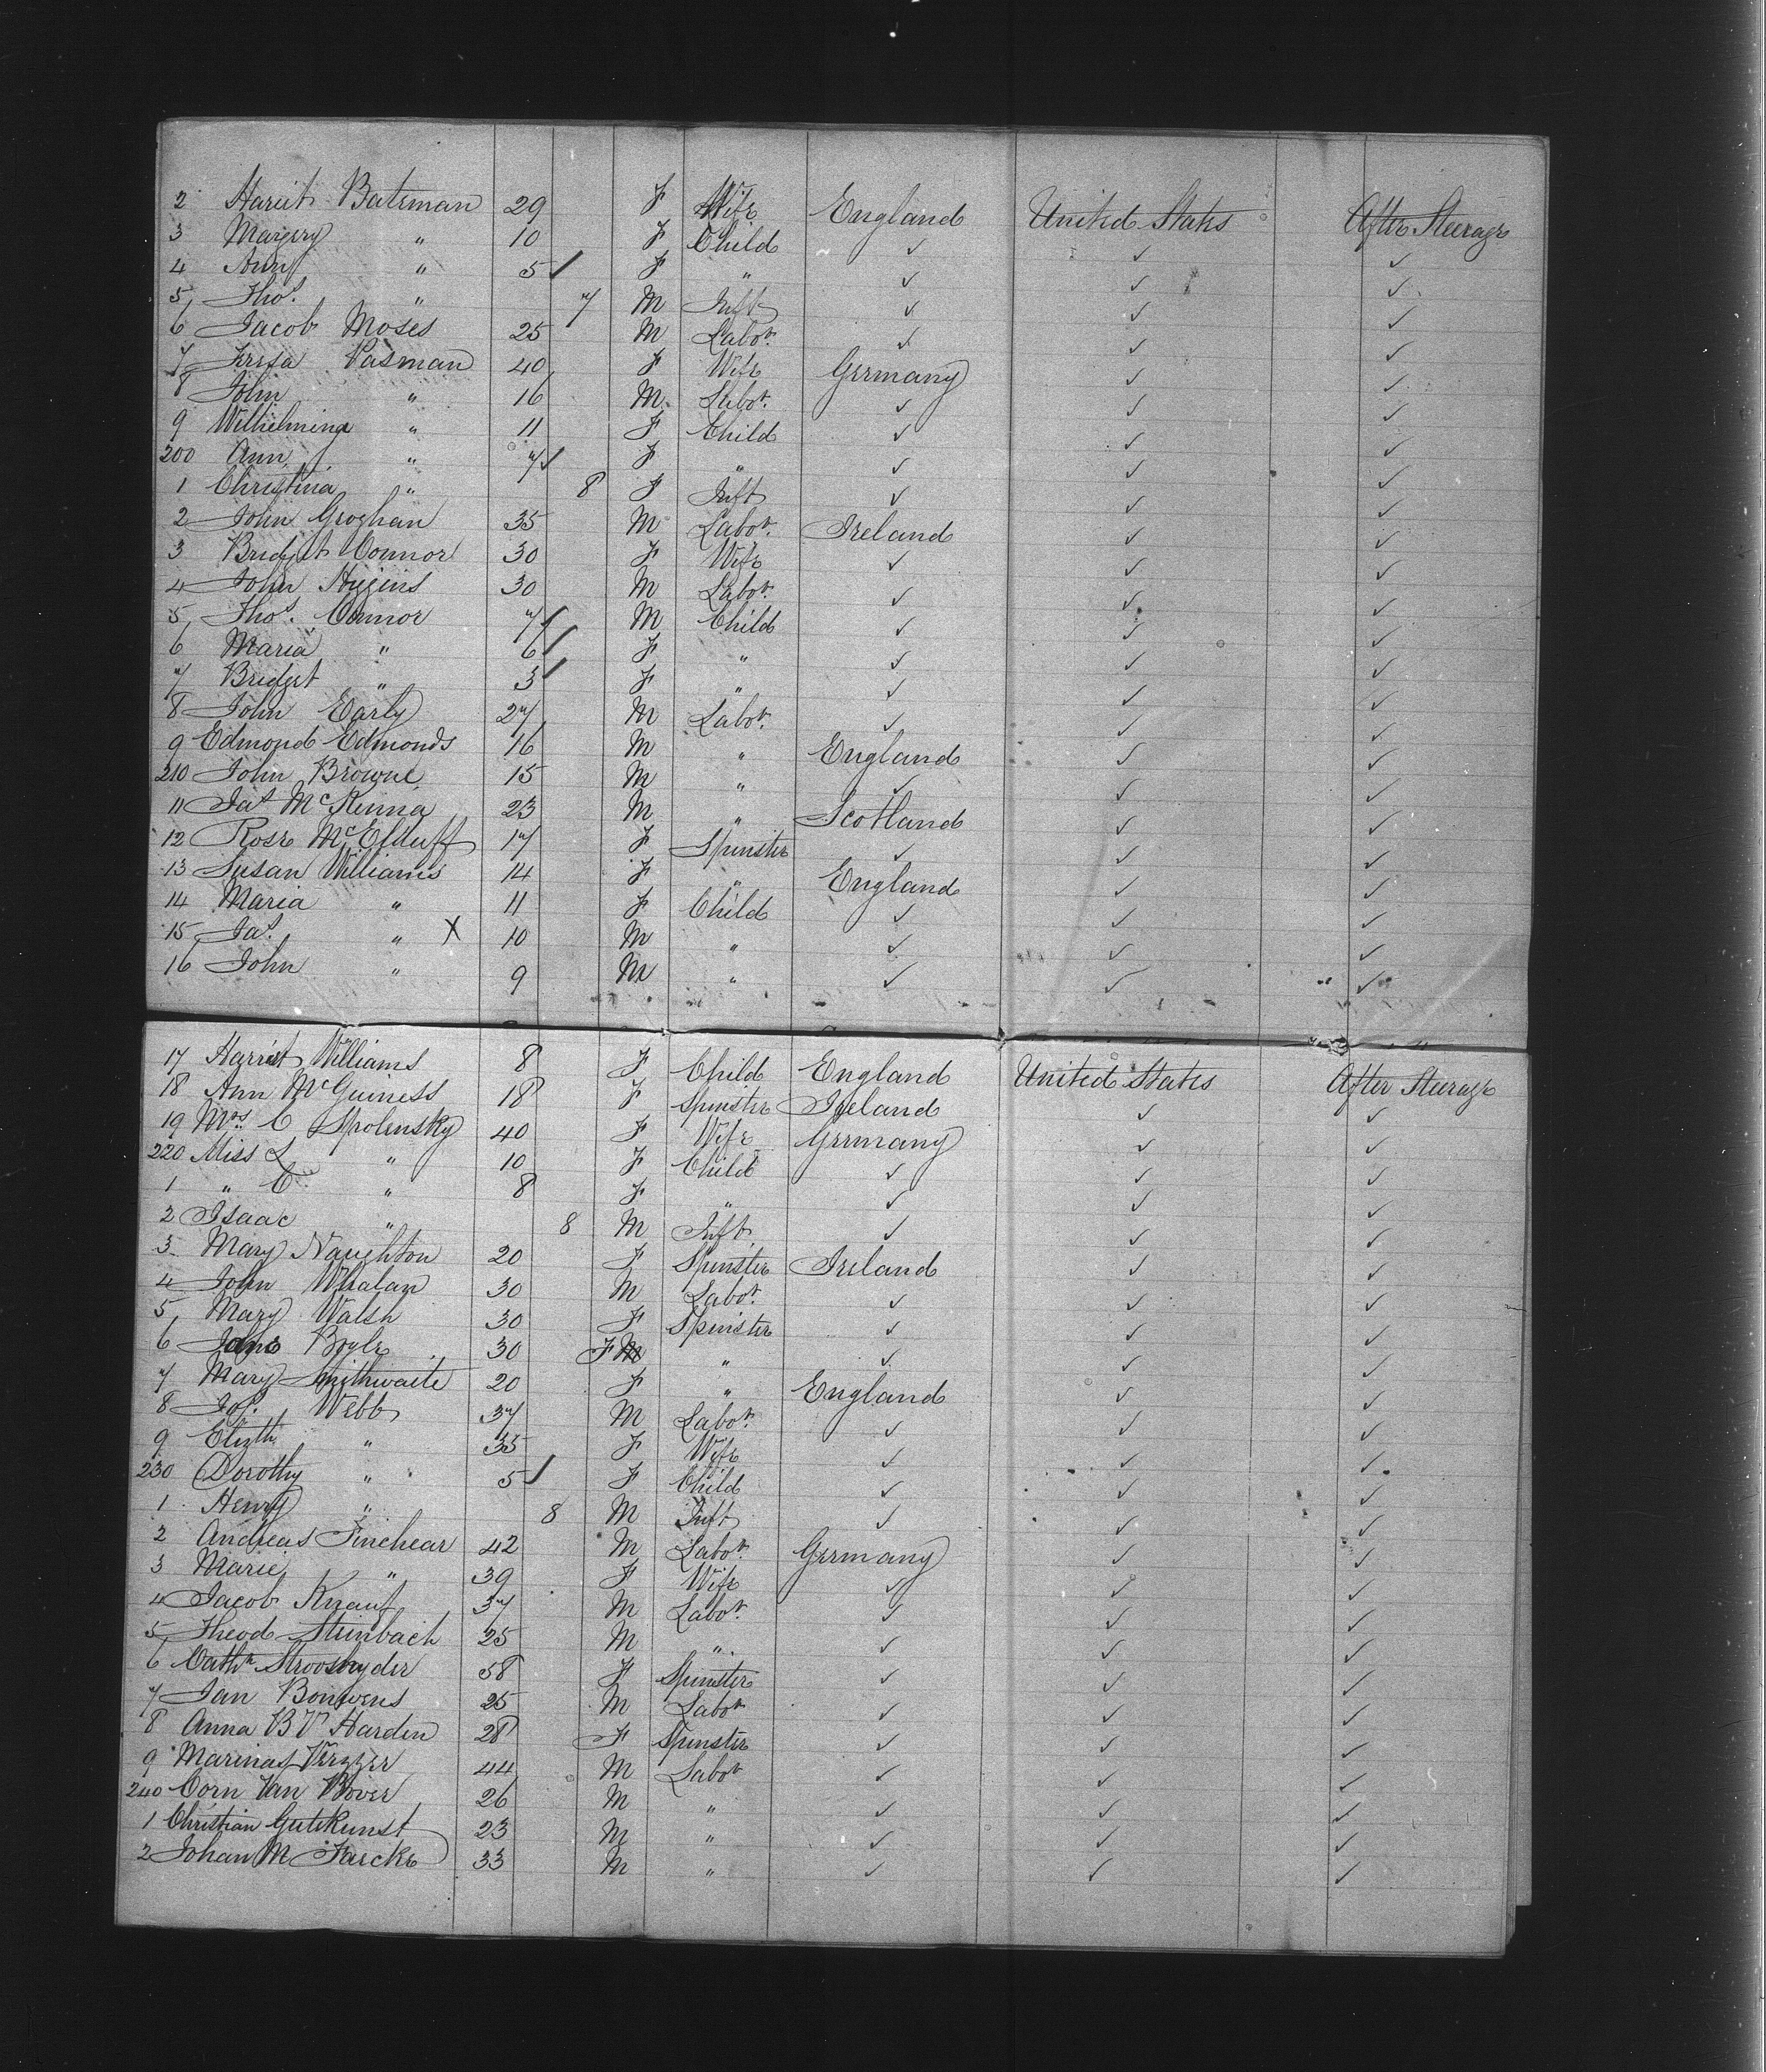 2 Hariet Bateman 29 F Wife England United States After Steerage
3 Margery " 10 F Child ✓ ✓ ✓
4 Ann " 5 ✓ F " ✓ ✓ ✓
5 Thos. " 7 M Inft ✓ ✓ ✓
6 Jacob Moses 25 M Labor. ✓ ✓ ✓
7 40 F Wife Germany ✓ ✓
8 John " 16 M Labor. ✓ ✓ ✓
9 Wilhelmina " 11 F Child ✓ ✓ ✓
200 Ann " 7 ✓ F " ✓ ✓ ✓
1 Christina " 8 F Inft ✓ ✓ ✓
2 John Groghan 35 M Labor. Ireland ✓ ✓
3 Bridget Connor 30 F Wife ✓ ✓ ✓
4 John Higgins 30 M Labor. ✓ ✓ ✓
5 Thos. Connor 7 ✓ M Child ✓ ✓ ✓
6 Maria " 6 ✓ F " ✓ ✓ ✓
7 Bridget " 3 ✓ F " ✓ ✓ ✓
8 John Early 27 M Labor. ✓ ✓ ✓
9 Edmond Edmonds 16 M " England ✓ ✓
210 John Browne 15 M " ✓ ✓ ✓
11 Jas McKenna 23 M " Scotland ✓ ✓
12 Rose McElduff 17 F Spinster ✓ ✓ ✓
13 Susan Williams 14 F " England ✓ ✓
14 Maria " 11 F Child ✓ ✓ ✓
15 Jas. " X 10 M " ✓ ✓ ✓
16 John " 9 M " ✓ ✓ ✓
17 Harriet Williams 8 F Child England United States After Steerage
18 Ann McGuiness 18 F Spinster Ireland ✓ ✓
19 Mrs. C 40 F Wife Germany ✓ ✓
220 Miss L " 10 F Child ✓ ✓ ✓
1 " C " 8 F " ✓ ✓ ✓
2 Isaac " 8 M Inft. ✓ ✓ ✓
3 Mary Naughton 20 F Spinster Ireland ✓ ✓
4 John Whalan 30 M Labor. ✓ ✓ ✓
5 Mary Walsh 30 F Spinster ✓ ✓ ✓
6 Boyle 30 F M " ✓ ✓ ✓
7 Mary Smithwaite 20 F " England ✓ ✓
8 Jos. Webb 37 M Labor. ✓ ✓ ✓
9 Elizth " 35 F Wife ✓ ✓ ✓
230 Dorothy " 5 ✓ F Child ✓ ✓ ✓
1 Henry " 8 M Inft ✓ ✓ ✓
2 Andreas Finchear 42 M Labor. Germany ✓ ✓
3 Marie " 39 F Wife ✓ ✓ ✓
4 Jacob Knauf 37 M Labor. ✓ ✓ ✓
5 Theod Steinbach 25 M " ✓ ✓ ✓
6 Cathn 58 F Spinster ✓ ✓ ✓
7 Jan Bouwens 25 M Labor ✓ ✓ ✓
8 Anna B Vn Harden 28 F Spinster ✓ ✓ ✓
9 Marinas 44 M Labor ✓ ✓ ✓
240 Corn Van Bover 26 M " ✓ ✓ ✓
1 Christian Gutekunst 23 M " ✓ ✓ ✓
2 Johan M 33 M " ✓ ✓ ✓